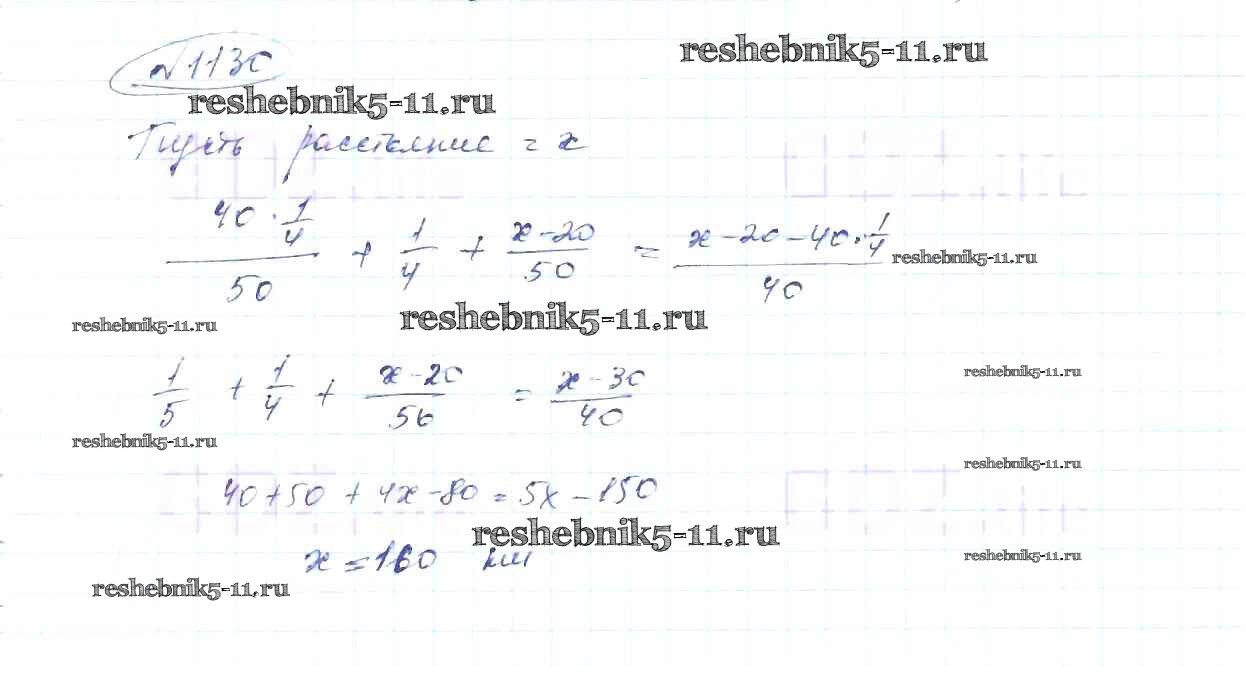 №1130
reshebnik5-11.ru
reshebnik5-11.ru
Пусть расстояние = x
40 · 1/4 / 50 + 1/4 + x-20 / 50 = x-20-40·1/4 / 40
reshebnik5-11.ru
reshebnik5-11.ru
reshebnik5-11.ru
1/5 + 1/4 + x-20 / 50 = x-30 / 40
reshebnik5-11.ru
reshebnik5-11.ru
reshebnik5-11.ru
40+50 + 4x-80 = 5x-150
reshebnik5-11.ru
x = 160 км
reshebnik5-11.ru
reshebnik5-11.ru